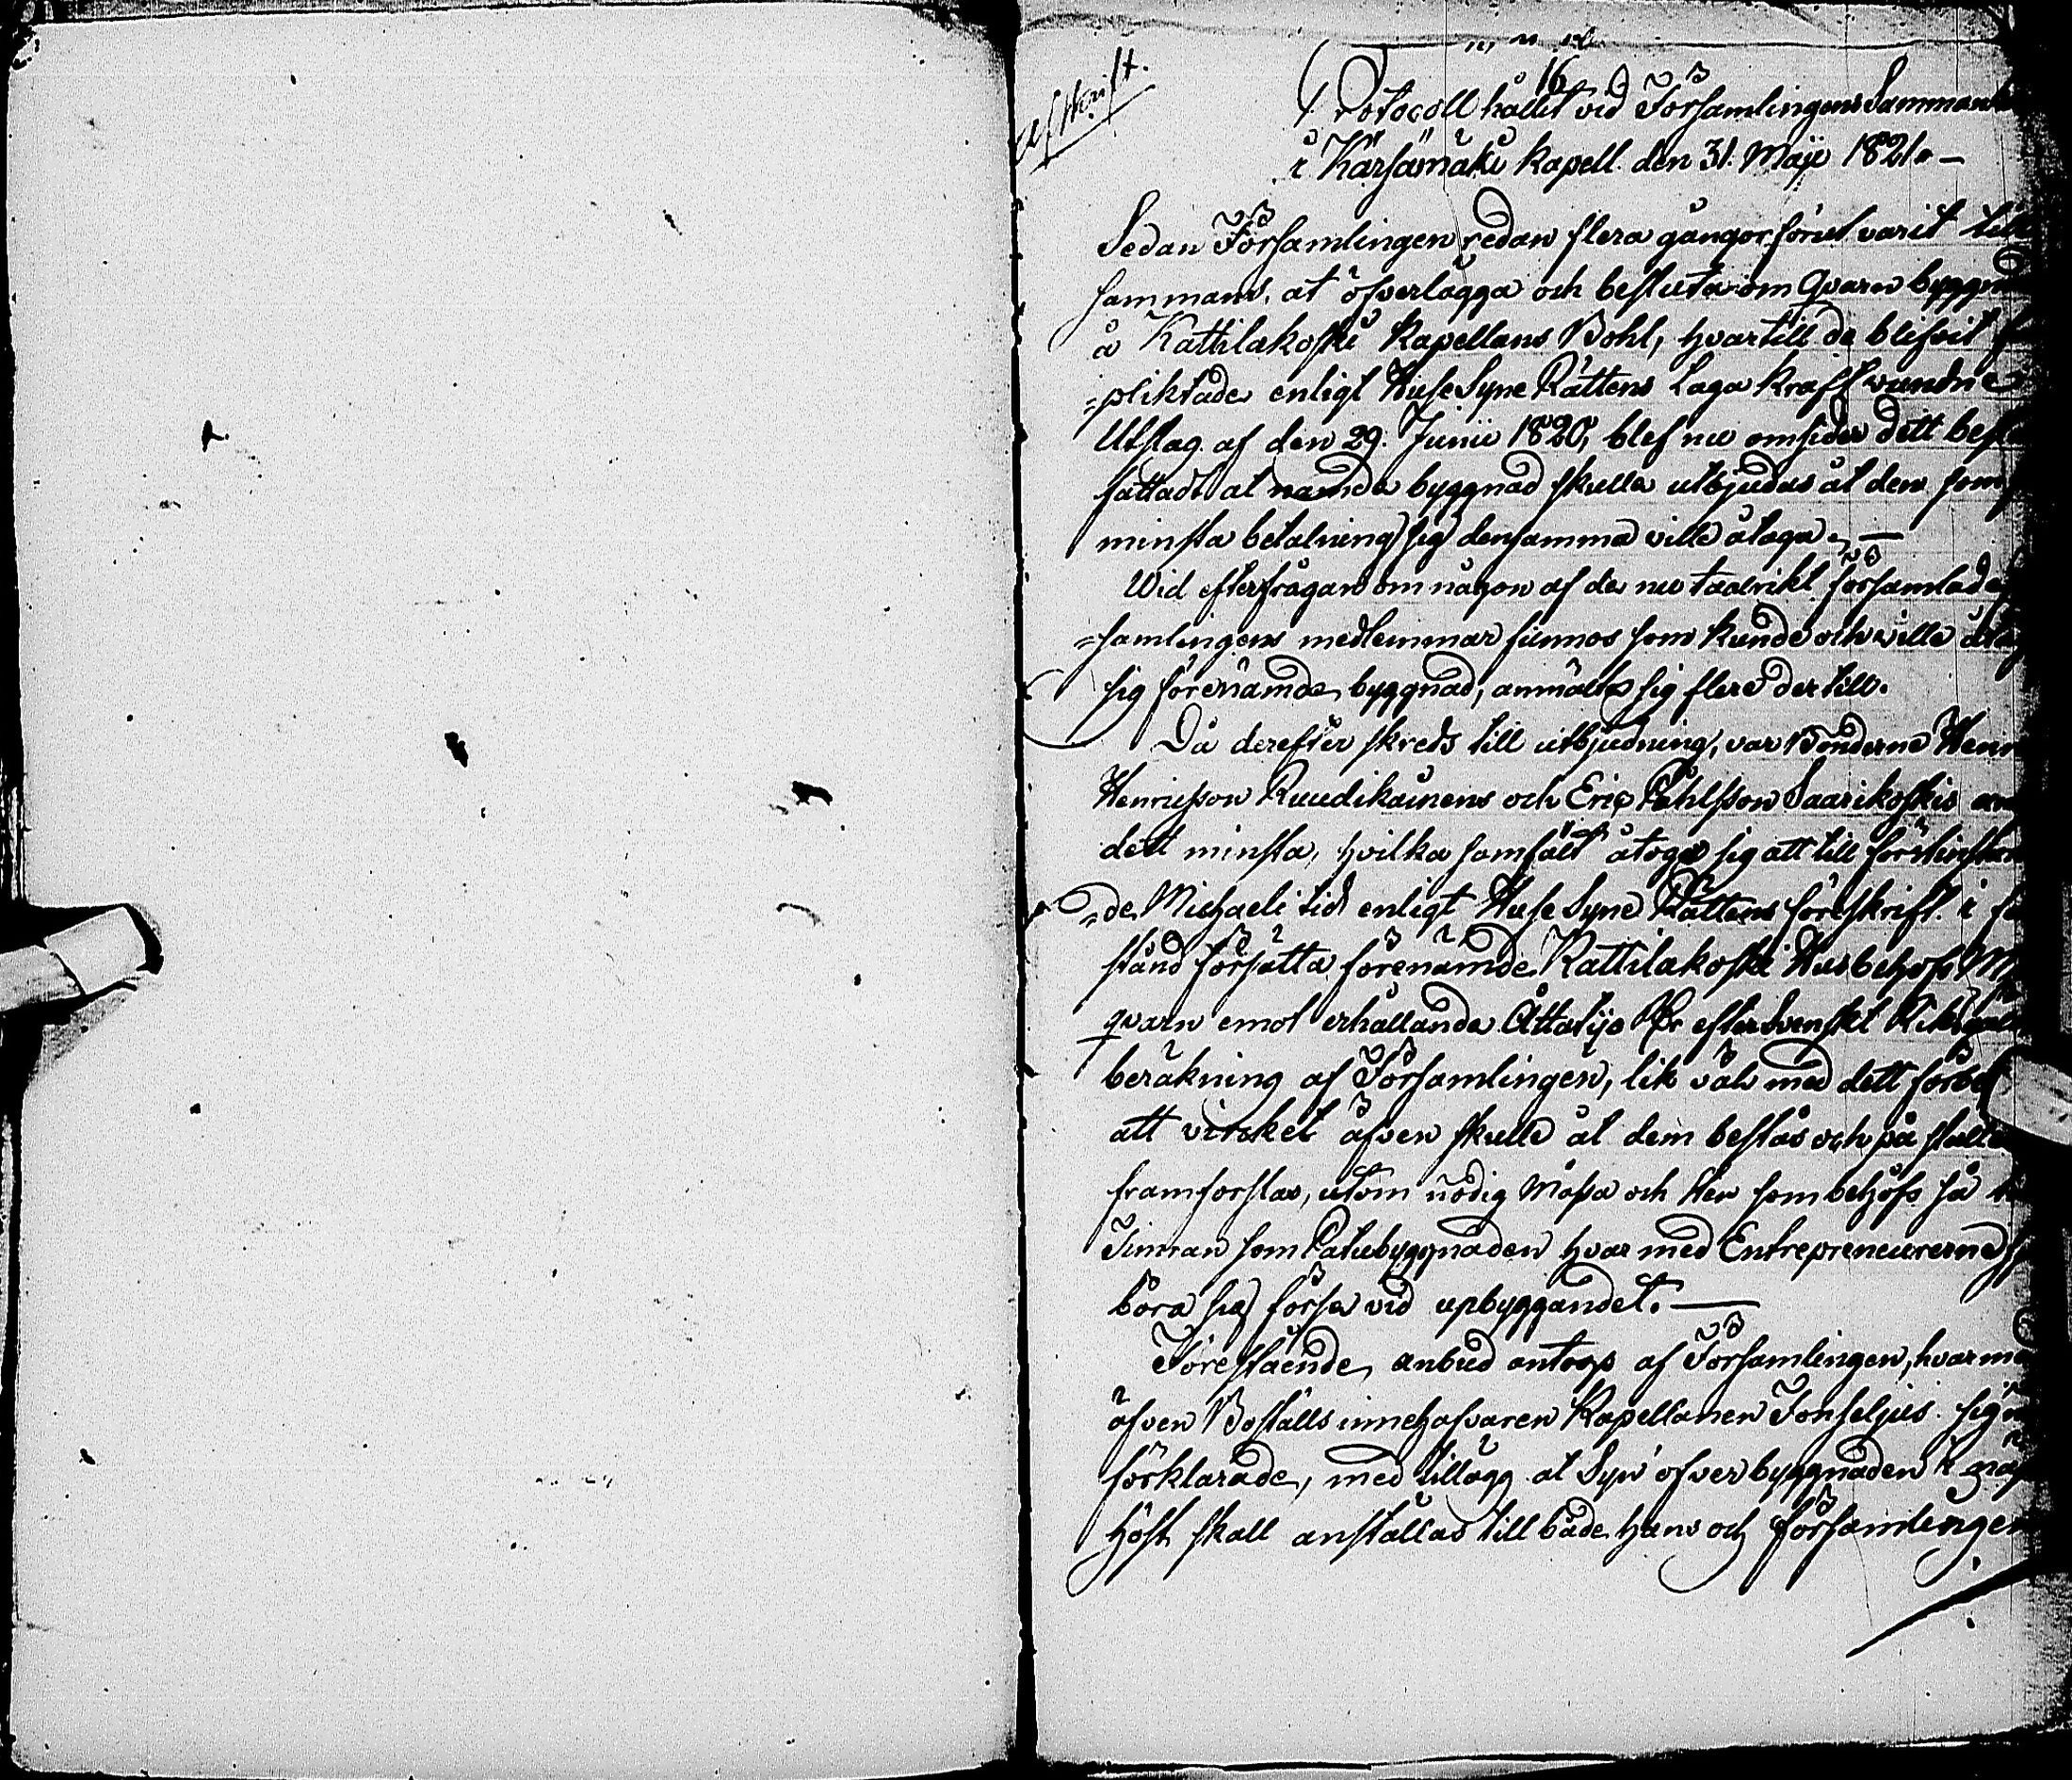 Afskrift.
16
Protocoll hållit vid Församlingens Samman
i Kärsämäki Kapell. den 31. Maji 1821.
Sedan Församlingen redan flera gångor förut varit till
sammans, at öfverlägga och besluta om Qvarn byggn
å Kattilakoski Kapellans Bohl, hvartill de blifvit
=pliktade enligt Huse Syne Rättens Laga Kraft vundne
Utslag af den 29. Junii 1820, blef nu omsider dett besl
fattadt at nämde byggnad skulle utbjudas åt den som
minsta betalning sig densamma ville åtaga.
Wid efterfrågan om någon af de nu talrikt församlade
=samlingens medlemmar funnos som kunde och ville åta
sig förenämde byggnad, anmälte sig flere dertill.
Då derefter skreds till utbjudning, var Bönderne Henr
Henricsson Ruudikainens och Eric Påhlsson Saarikoskis
dett minsta, hvilka samfält åtogo sig att till
=de Michaeli tid enligt Huse Syne Rättens föreskrift. i
stånd försätta förenämde Kattilakoski Husbehofs
qvarn emot erhållande Åttatijo Rdr efter Svenskt Riksgäl
beräkning af Församlingen, lik väl med dett förbeh
att virket äfven skulle åt dem bestås och på stället
framforslas, utom nödig Måssa och som behöfs så
Timran som byggnaden hvar med Entrepreneurerne
böra sig förse vid upbyggandet.
Förestående anbud antogs af Församlingen, hvarme
äfven Boställs innehafvaren Kapellanen Jonseljus. sig
förklarade, med tillägg at Syn öfver byggnaden
Höst skall anställas till både hans och Församlingen